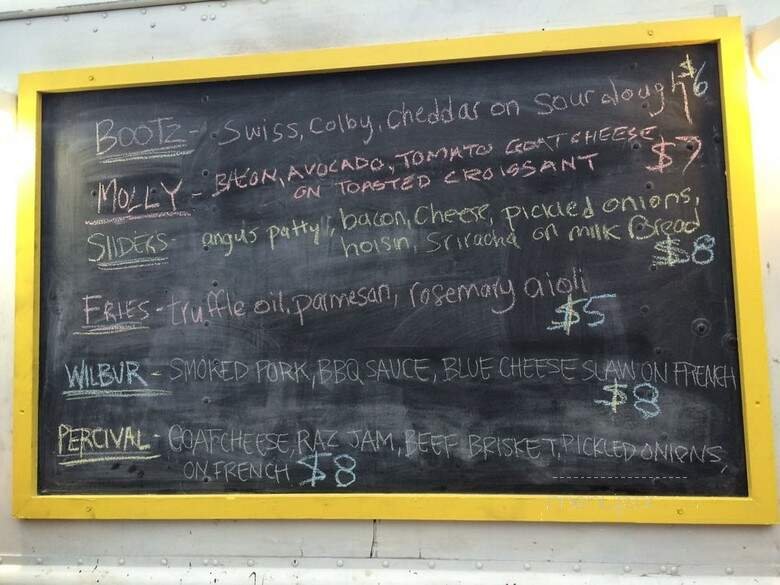 BOOTZ - Swiss, Colby, Cheddar on Sourdough $6
MOLLY - BACON, AVOCADO, TOMATO GOAT CHEESE
ON TOASTED CROISSANT $7
SlIDERS - angus patty, bacon, Cheese, pickled onions,
hoisin, Sriracha on milk Bread
$8
FRIES - truffle oil, parmesan, rosemary aioli
$5
WILBUR - SMOKED PORK, BBQ SAUCE, BLUE CHEESE SLAW ON FRENCH
$8
PERCIVAL - GOAT CHEESE, RAZ JAM, BEEF BRISKET, PICKLED ONIONS,
ON FRENCH $8